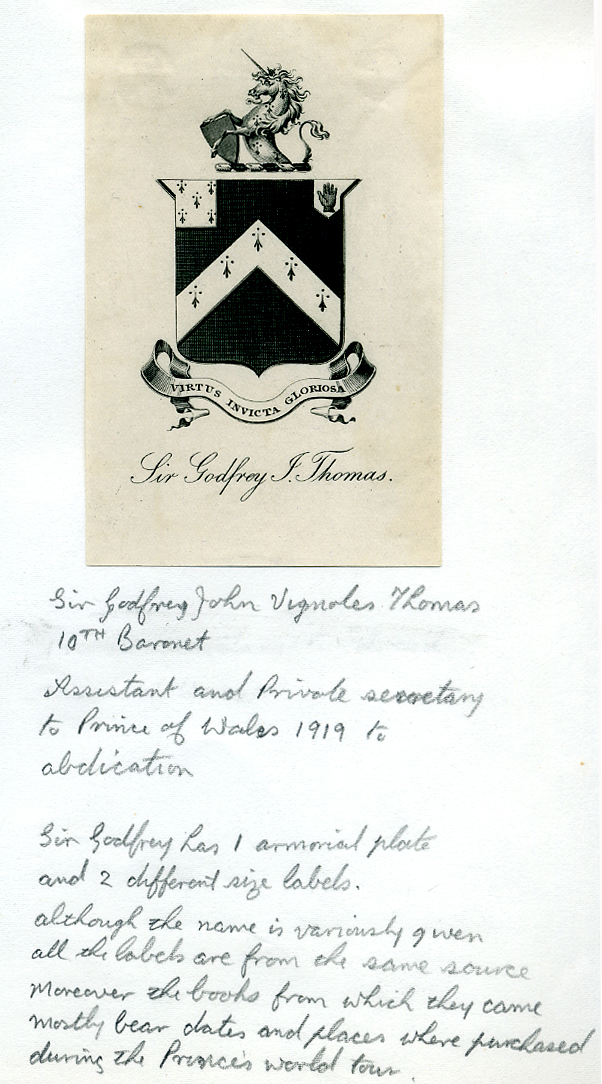 VIRTUS INVICTA GLORIOSA
Sir Godfrey J. Thomas.
Sir Godfrey John Vignoles Thomas
10TH Baronet
Assistant and Private secretary
to Prince of Wales 1919 to
abdication
Sir Godfrey has 1 armorial plate
and 2 different size labels.
although the name is variously given
all the labels are from the same source
Moreover the books from which they came
mostly bear dates and places where purchased
during the Prince's world tour.